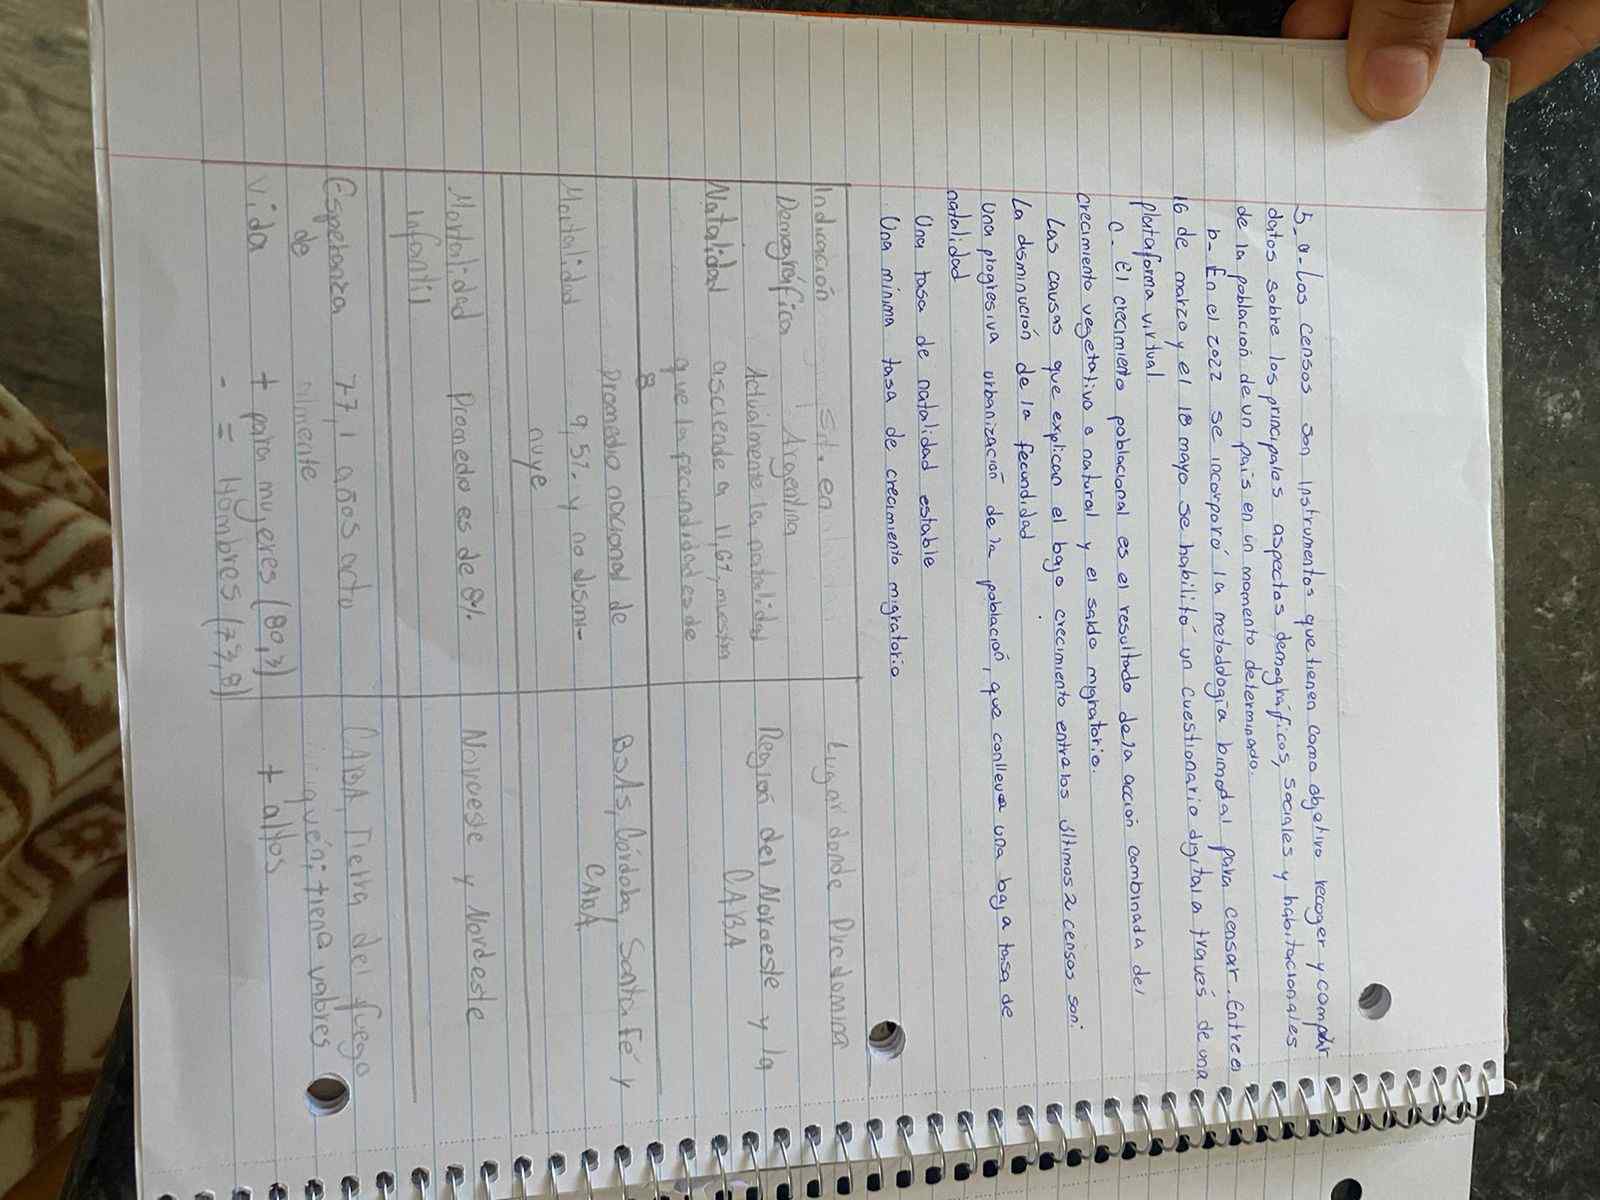 5_a-Los censos son instrumentos que tienen como objetivo recoger y compilar
datos sobre los principales aspectos demográficos, sociales y habitacionales
de la población de un país en un momento determinado.
b- En el 2022 se incorporó la metodología bimodal para censar. Entre el
16 de marzo y el 18 mayo se habilitó un cuestionario digital a través de una
plataforma virtual.
c- El crecimiento poblacional es el resultado de la acción combinada del
crecimiento vegetativo o natural y el saldo migratorio.
Las causas que explican el bajo crecimiento entre los últimos 2 censos son:
La disminución de la fecundidad
Una progresiva urbanización de la población, que conlleva una baja tasa de
natalidad
Una tasa de natalidad estable
Una mínima tasa de crecimiento migratorio
Indicación Sit. en Lugar donde Predomina
Demográfica Argentina
Natalidad Actualmente la natalidad Región del Noroeste y la
asciende a 11,67, muestra CABA
que la fecundidad es de
8
Mortalidad Promedio nacional de BsAs, Córdoba, Santa Fé y
9,5% y no dismi- CABA
nuye
Mortalidad Promedio es de 8% Noroeste y Nordeste
Infantil
Esperanza 77,1 años actu CABA, Tierra del fuego
de almente quén; tiene valores
vida + para mujeres (80,3) + altos
- = Hombres (73,8)